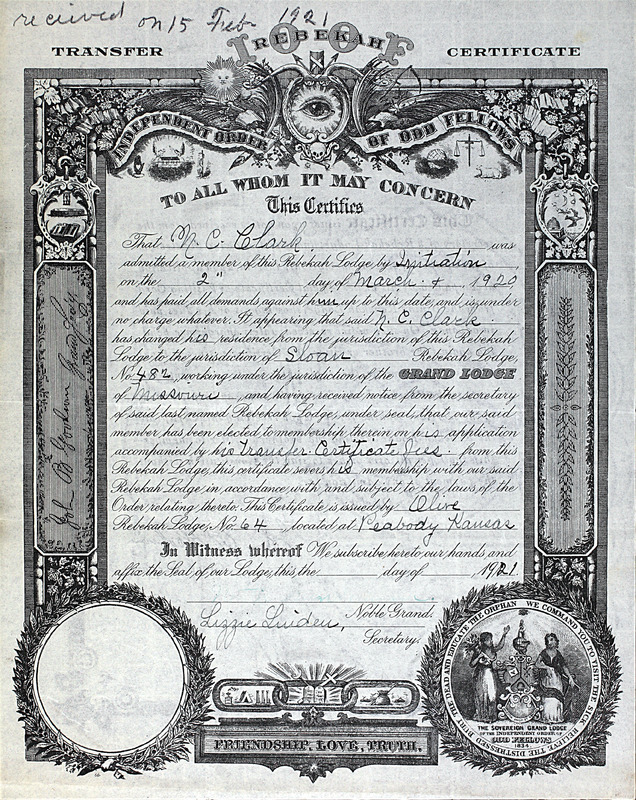 received on 15 Feb 1921
I O O F
REBEKAH
TRANSFER CERTIFICATE
INDEPENDENT ORDER OF ODD FELLOWS
TO ALL WHOM IT MAY CONCERN
This Certifies
That N. C. Clark was
admitted a member of this Rebekah Lodge by Initiation
on the 2" day of March 1920
and has paid all demands against him up to this date, and is under
no charge whatever. It appearing that said N. C. Clark
has changed his residence from the jurisdiction of this Rebekah
Lodge to the jurisdiction of Sloan Rebekah Lodge,
No. 482, working under the jurisdiction of the GRAND LODGE
of Missouri, and having received notice from the secretary
of said last named Rebekah Lodge, under seal, that our said
member has been elected to membership therein on his application
accompanied by his Transfer Certificate fees from this
Rebekah Lodge, this certificate severs his membership with our said
Rebekah Lodge in accordance with and subject to the laws of the
Order, relating thereto. This Certificate is issued by Olive
Rebekah Lodge, No. 64, located at Peabody Kansas
In Witness whereof We subscribe hereto our hands, and
affix the Seal of our Lodge, this, the day of, 1921.
Noble Grand.
Lizzie Linden,
Secretary.
John B Goodson Grand Secy
WE COMMAND YOU TO VISIT THE SICK RELIEVE THE DISTRESSED BURY THE DEAD AND EDUCATE THE ORPHAN
THE SOVEREIGN GRAND LODGE
OF THE INDEPENDENT ORDER OF
ODD FELLOWS
1834
FRIENDSHIP, LOVE, TRUTH.